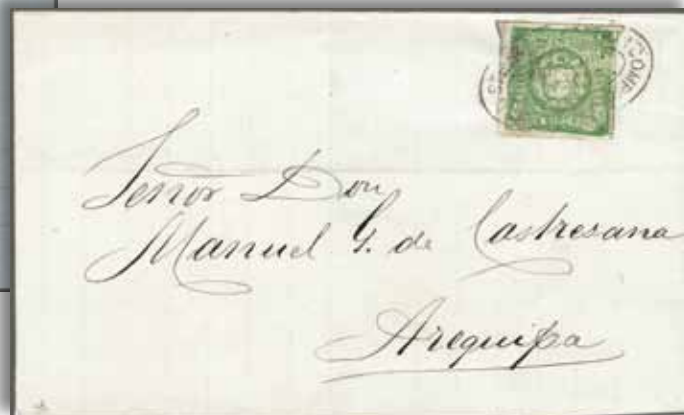 Señor Don
Manuel G. de Castresana
Arequipa